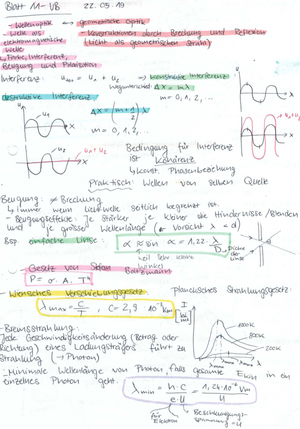 Blatt 11 - VB 22.05.19
- Wellenoptik ↔ geometrische Optik
Licht als elektromagnetische Welle
- Konstruktionen durch Brechung und Reflexion
(Licht als geometrischen Strahl)
↳ Farbe, Interferenz, Beugung und Polarisation
Interferenz: u_ges = u₁ + u₂ ⇒ konstruktive Interferenz
Wegunterschied: Δx = mλ
m = 0, 1, 2, ...
destruktive Interferenz
Δx = (m + 1/2) λ
m = 0, 1, 2, ...
Bedingung für Interferenz ist Kohärenz
↳ konst. Phasenbeziehung
Praktisch: Wellen von selben Quelle
Beugung: ≠ Brechung
↳ immer wenn Lichtwelle seitlich begrenzt ist.
- Beugungseffekte: Je stärker je kleiner die Hindernisse/Blenden
und je größer Wellenlänge (* Vorsicht λ < d)
Bsp. einfache Linse: α ≈ sin α = 1,22 · λ/D
Dicke der Linse
weil sehr kleine Winkel
- Gesetz von Stefan Boltzmann
P = σ · A · T⁴
- Wiensches Verschiebungsgesetz
- plancksches Strahlungsgesetz:
λ_max = C/T, C = 2,9 · 10⁻³ Km
- Bremsstrahlung:
Jede Geschwindigkeitsänderung (Betrag oder
Richtung) eines Ladungsträgers führt zu
Strahlung (→ Photon)
- Minimale Wellenlänge von Photon, falls gesamte E_kin in ein
einzelnes Photon geht.
λ_min = h · c / e · U = 1,24 · 10⁻⁶ Vm / U
für Elektron
Beschleunigungsspannung = U